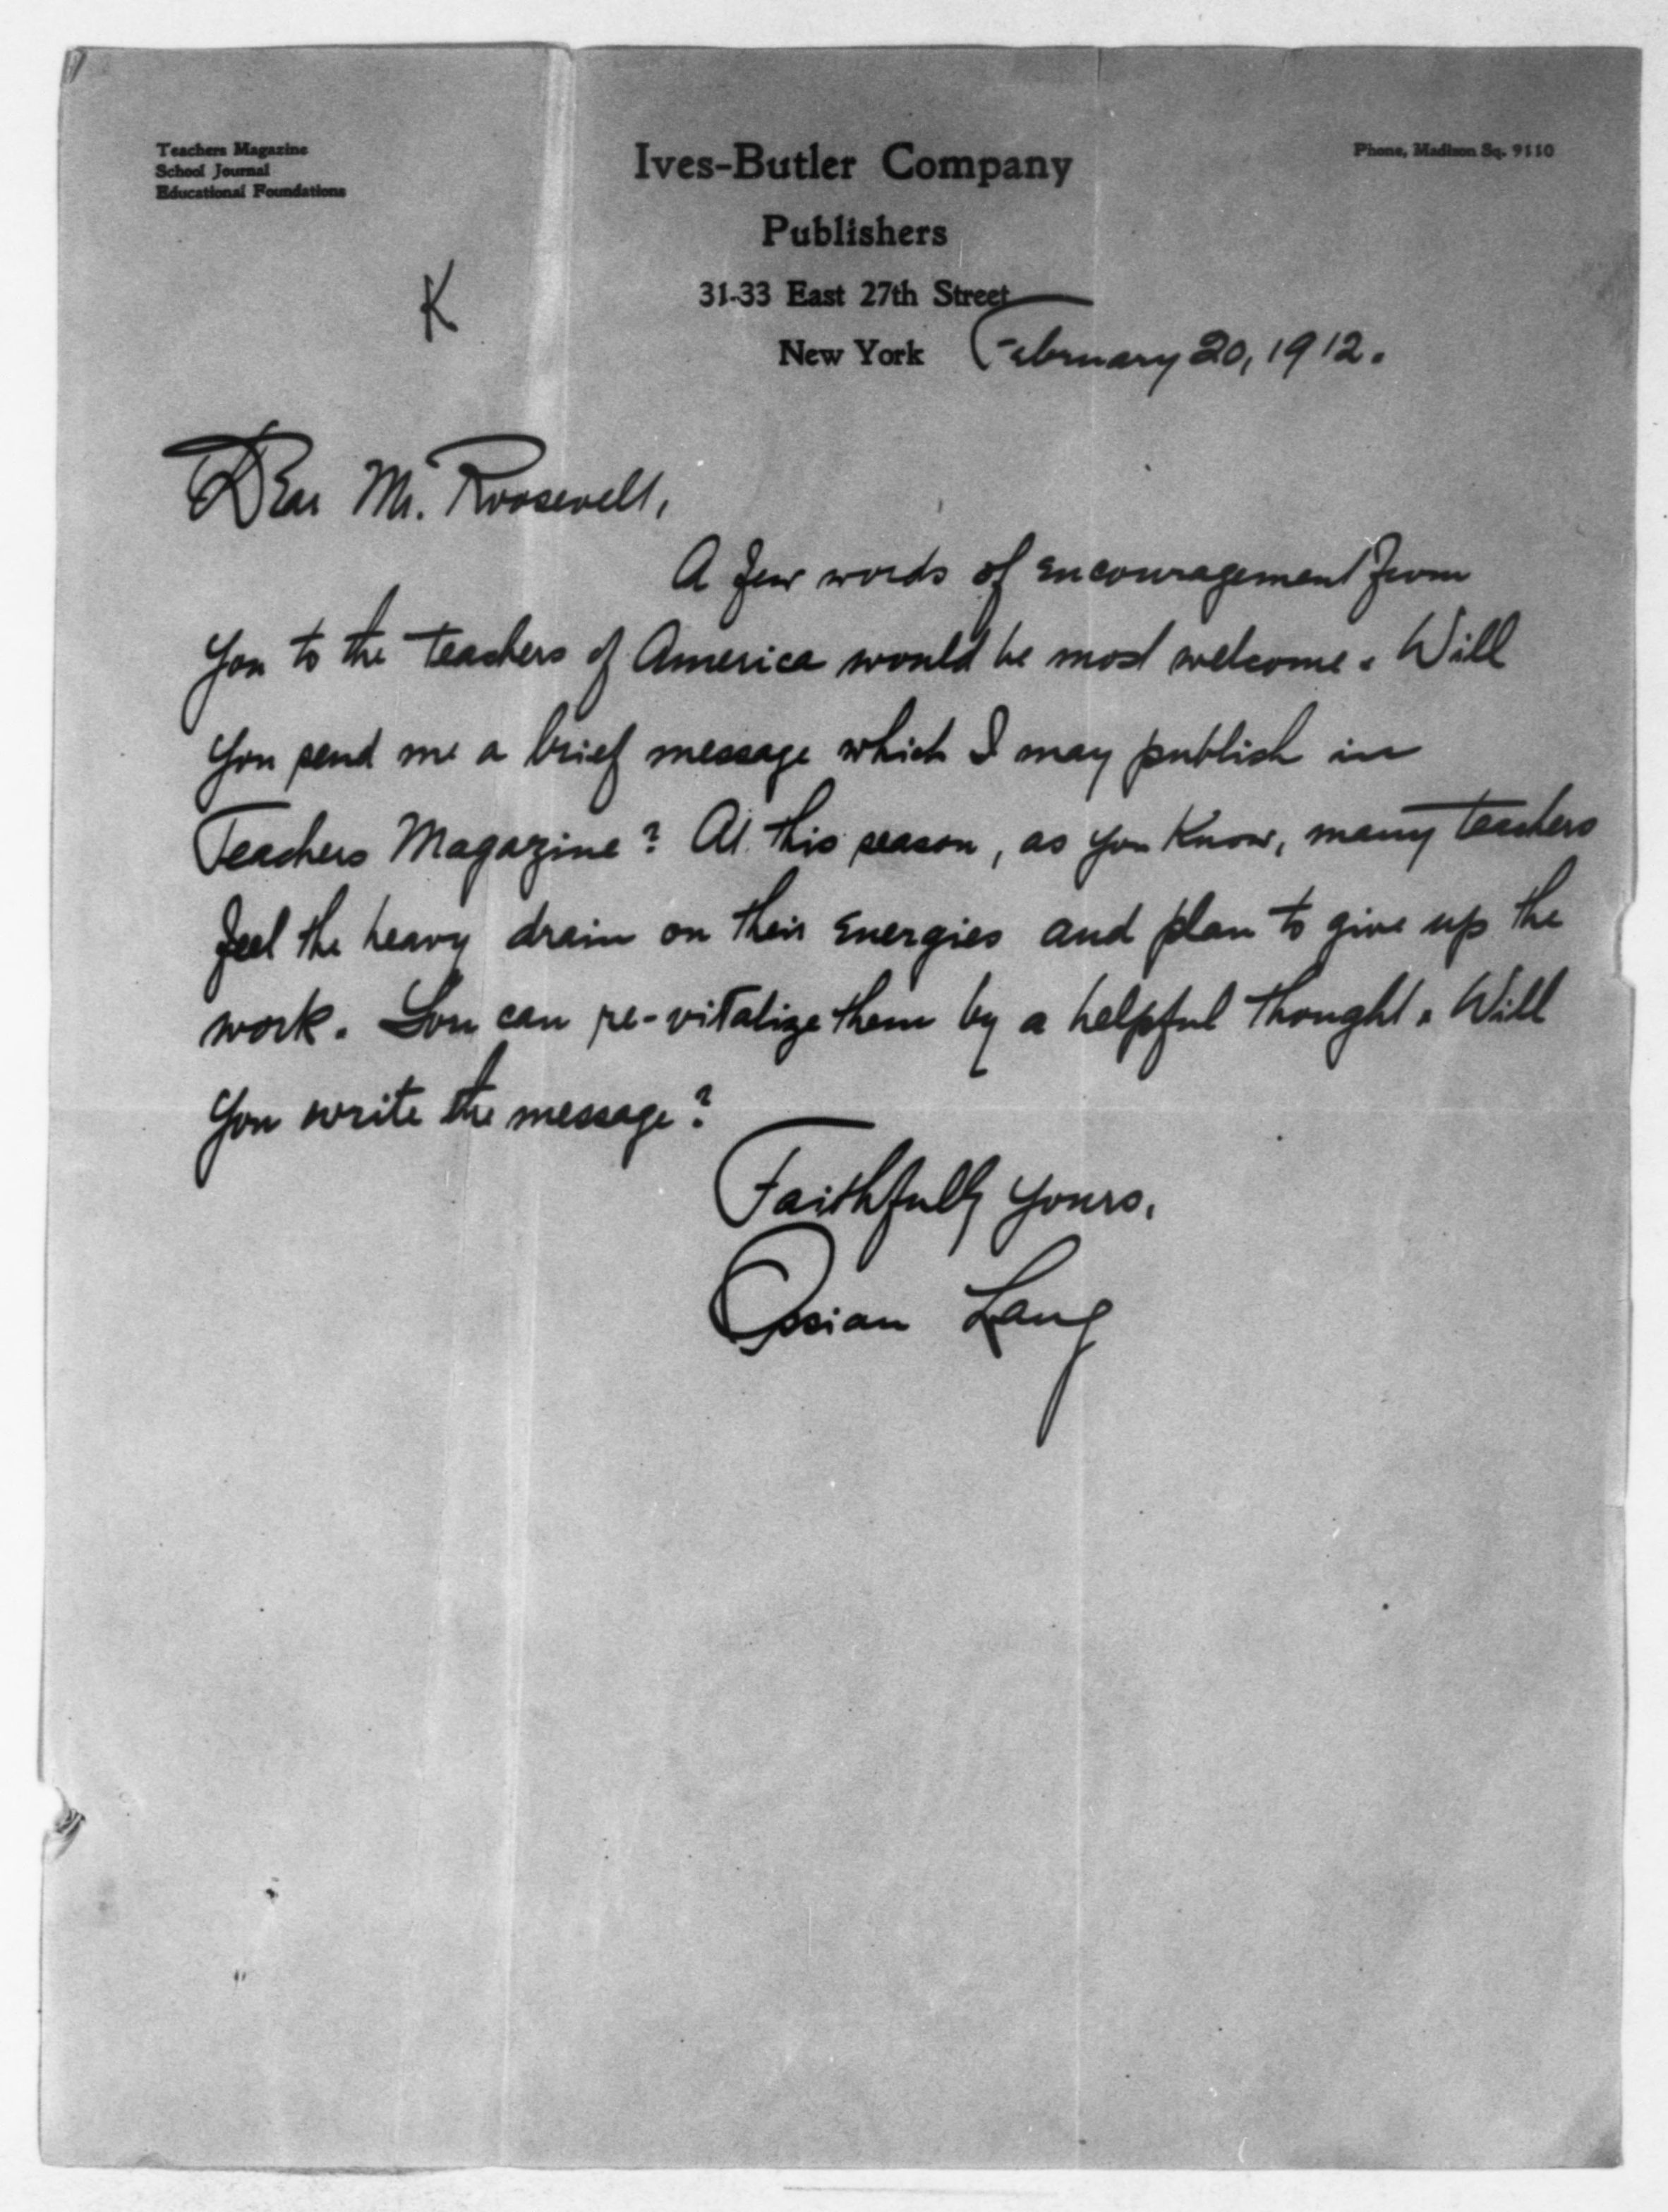 Teachers Magazine
School Journal
Educational Foundations
Ives-Butler Company
Publishers
31-33 East 27th Street
New York
Phone, Madison Sq. 9110
K
February 20, 1912.
Dear Mr. Roosevelt,
A few words of encouragement from
you to the teachers of America would be most welcome. Will
you send me a brief message which I may publish in
Teachers Magazine? At this season, as you know, many teachers
feel the heavy drain on their energies and plan to give up the
work. You can re-vitalize them by a helpful thought. Will
you write the message?
Faithfully yours,
Ossian Lang